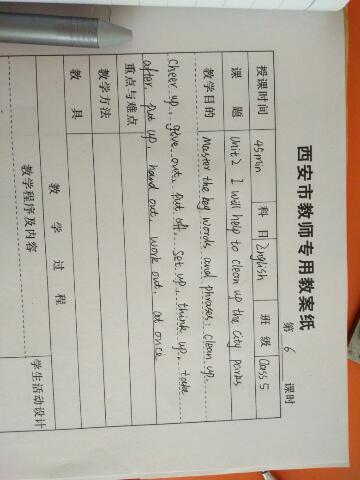 西安市教师专用教案纸
第 6 课时
授课时间 45min 科目 English 班级 Class 5
课题 Unit 2 I will help to clean up the city parks
教学目的 Master the key words and phrases: clean up,
cheer up, give out, put off, set up, think up, take
重点与难点 after, put up, hand out, work out, at once
教学方法
教具
教学过程
教学程序及内容 学生活动设计